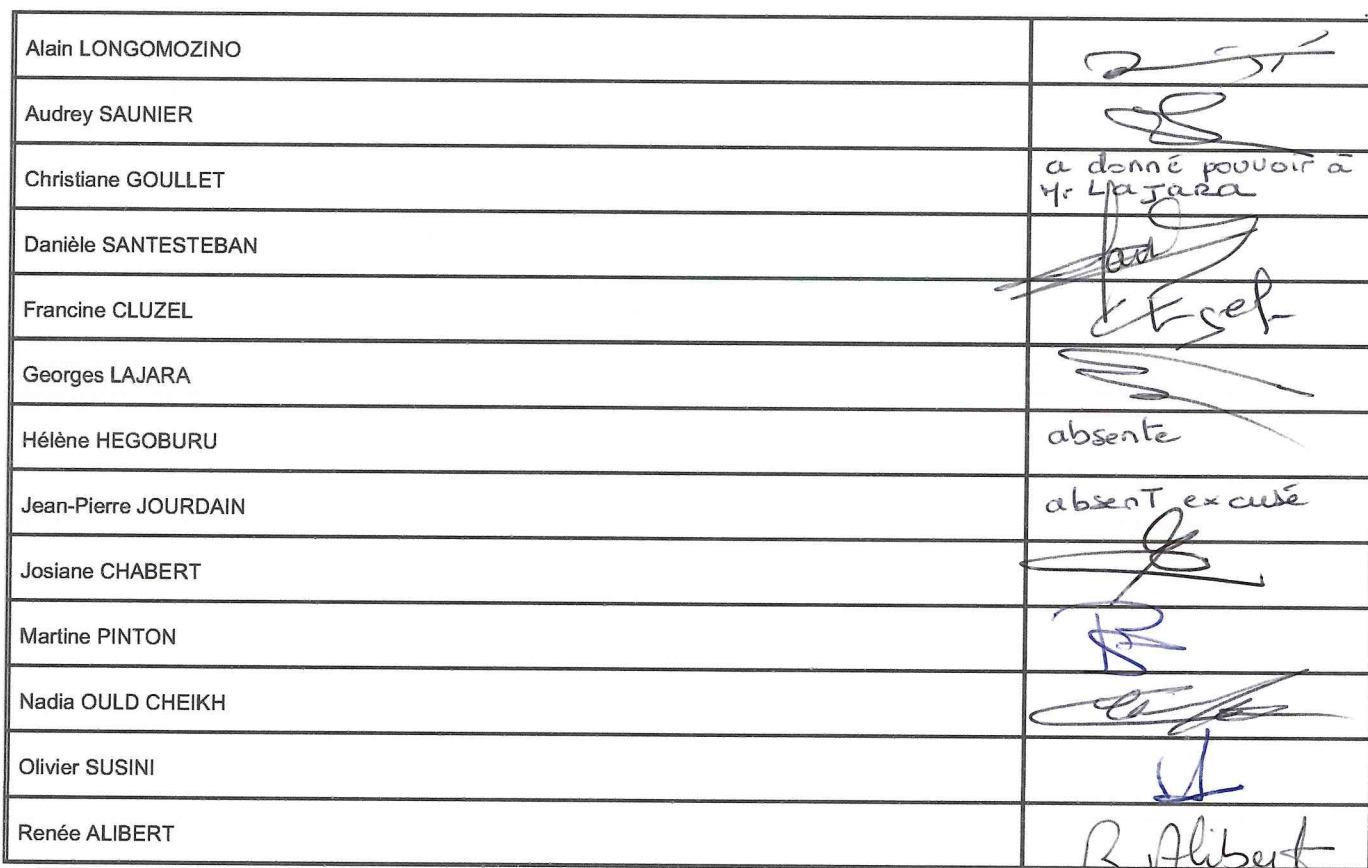 Alain LONGOMOZINO
Audrey SAUNIER
Christiane GOULLET
a donné pouvoir à
Mr LAJARA
Danièle SANTESTEBAN
Francine CLUZEL
Georges LAJARA
Hélène HEGOBURU
absente
Jean-Pierre JOURDAIN
absent excusé
Josiane CHABERT
Martine PINTON
Nadia OULD CHEIKH
Olivier SUSINI
Renée ALIBERT
R. Alibert